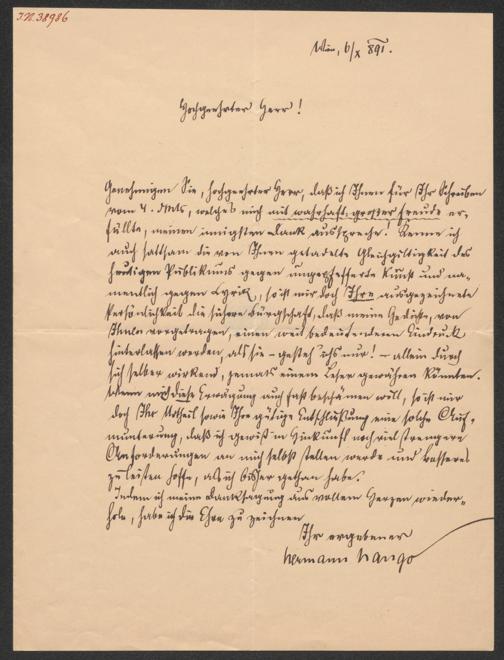 I.N. 38986
Wien, 6/X 891.
Hochgeehrter Herr!
Genehmigen Sie, hochgeehrter Herr, daß ich Ihnen für Ihr Schreiben
vom 4. d. Mts., welches mich mit wahrhaft großer Freude er-
füllte, meinen innigsten Dank ausspreche! Kenne ich
auch sattsam die von Ihnen getadelte Gleichgiltigkeit des
heutigen Publikums gegen ungepfefferte Kunst und na-
mentlich gegen Lyrik, so ist mir doch Ihre ausgezeichnete
Persönlichkeit die sichere Bürgschaft, daß meine Gedichte, von
Ihnen vorgetragen, einen weit bedeutenderen Eindruck
hinterlassen werden, als sie – gesteh' ich's nur! – allein durch
sich selber wirkend, jemals einem Leser gewähren könnten.
Wenn mich diese Erwägung auch fast beschämen will, so ist mir
doch Ihr Urtheil sowie Ihre gütige Entschließung eine solche Auf-
munterung, daß ich gewiß in Hinkunft noch viel strengere
Anforderungen an mich selbst stellen werde und besseres
zu leisten hoffe, als ich bisher gethan habe.
Indem ich meine Danksagung aus vollem Herzen wieder-
hole, habe ich die Ehre zu zeichnen
Ihr ergebener
Hermann Hango